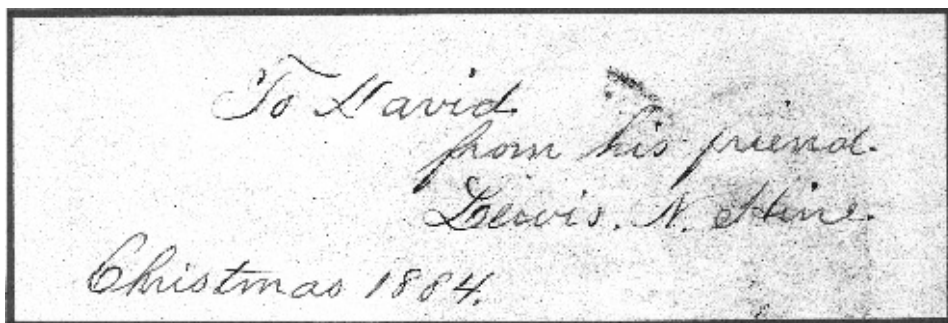 To David.
from his friend.
Lewis. N. Hine.
Christmas 1884.